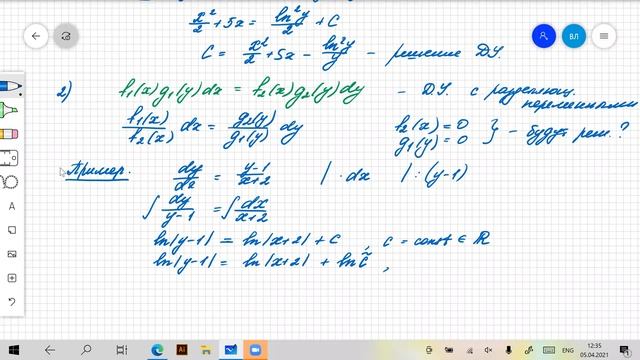 x²/2 + 5x = ln²y/2 + C
C = x²/2 + 5x - ln²y/y - решение ДУ.
2) f₁(x)g₁(y)dx = f₂(x)g₂(y)dy - ДУ с разделяющ. переменными
f₁(x)/f₂(x) dx = g₂(y)/g₁(y) dy f₂(x)=0 g₁(y)=0 } - будут реш.?
Пример. dy/dx = y-1/x+2 | ·dx | :(y-1)
∫ dy/y-1 = ∫ dx/x+2
ln|y-1| = ln|x+2| + C, C = const ∈ ℝ
ln|y-1| = ln|x+2| + ln C̃,
ВЛ
ENG
12:35
05.04.2021